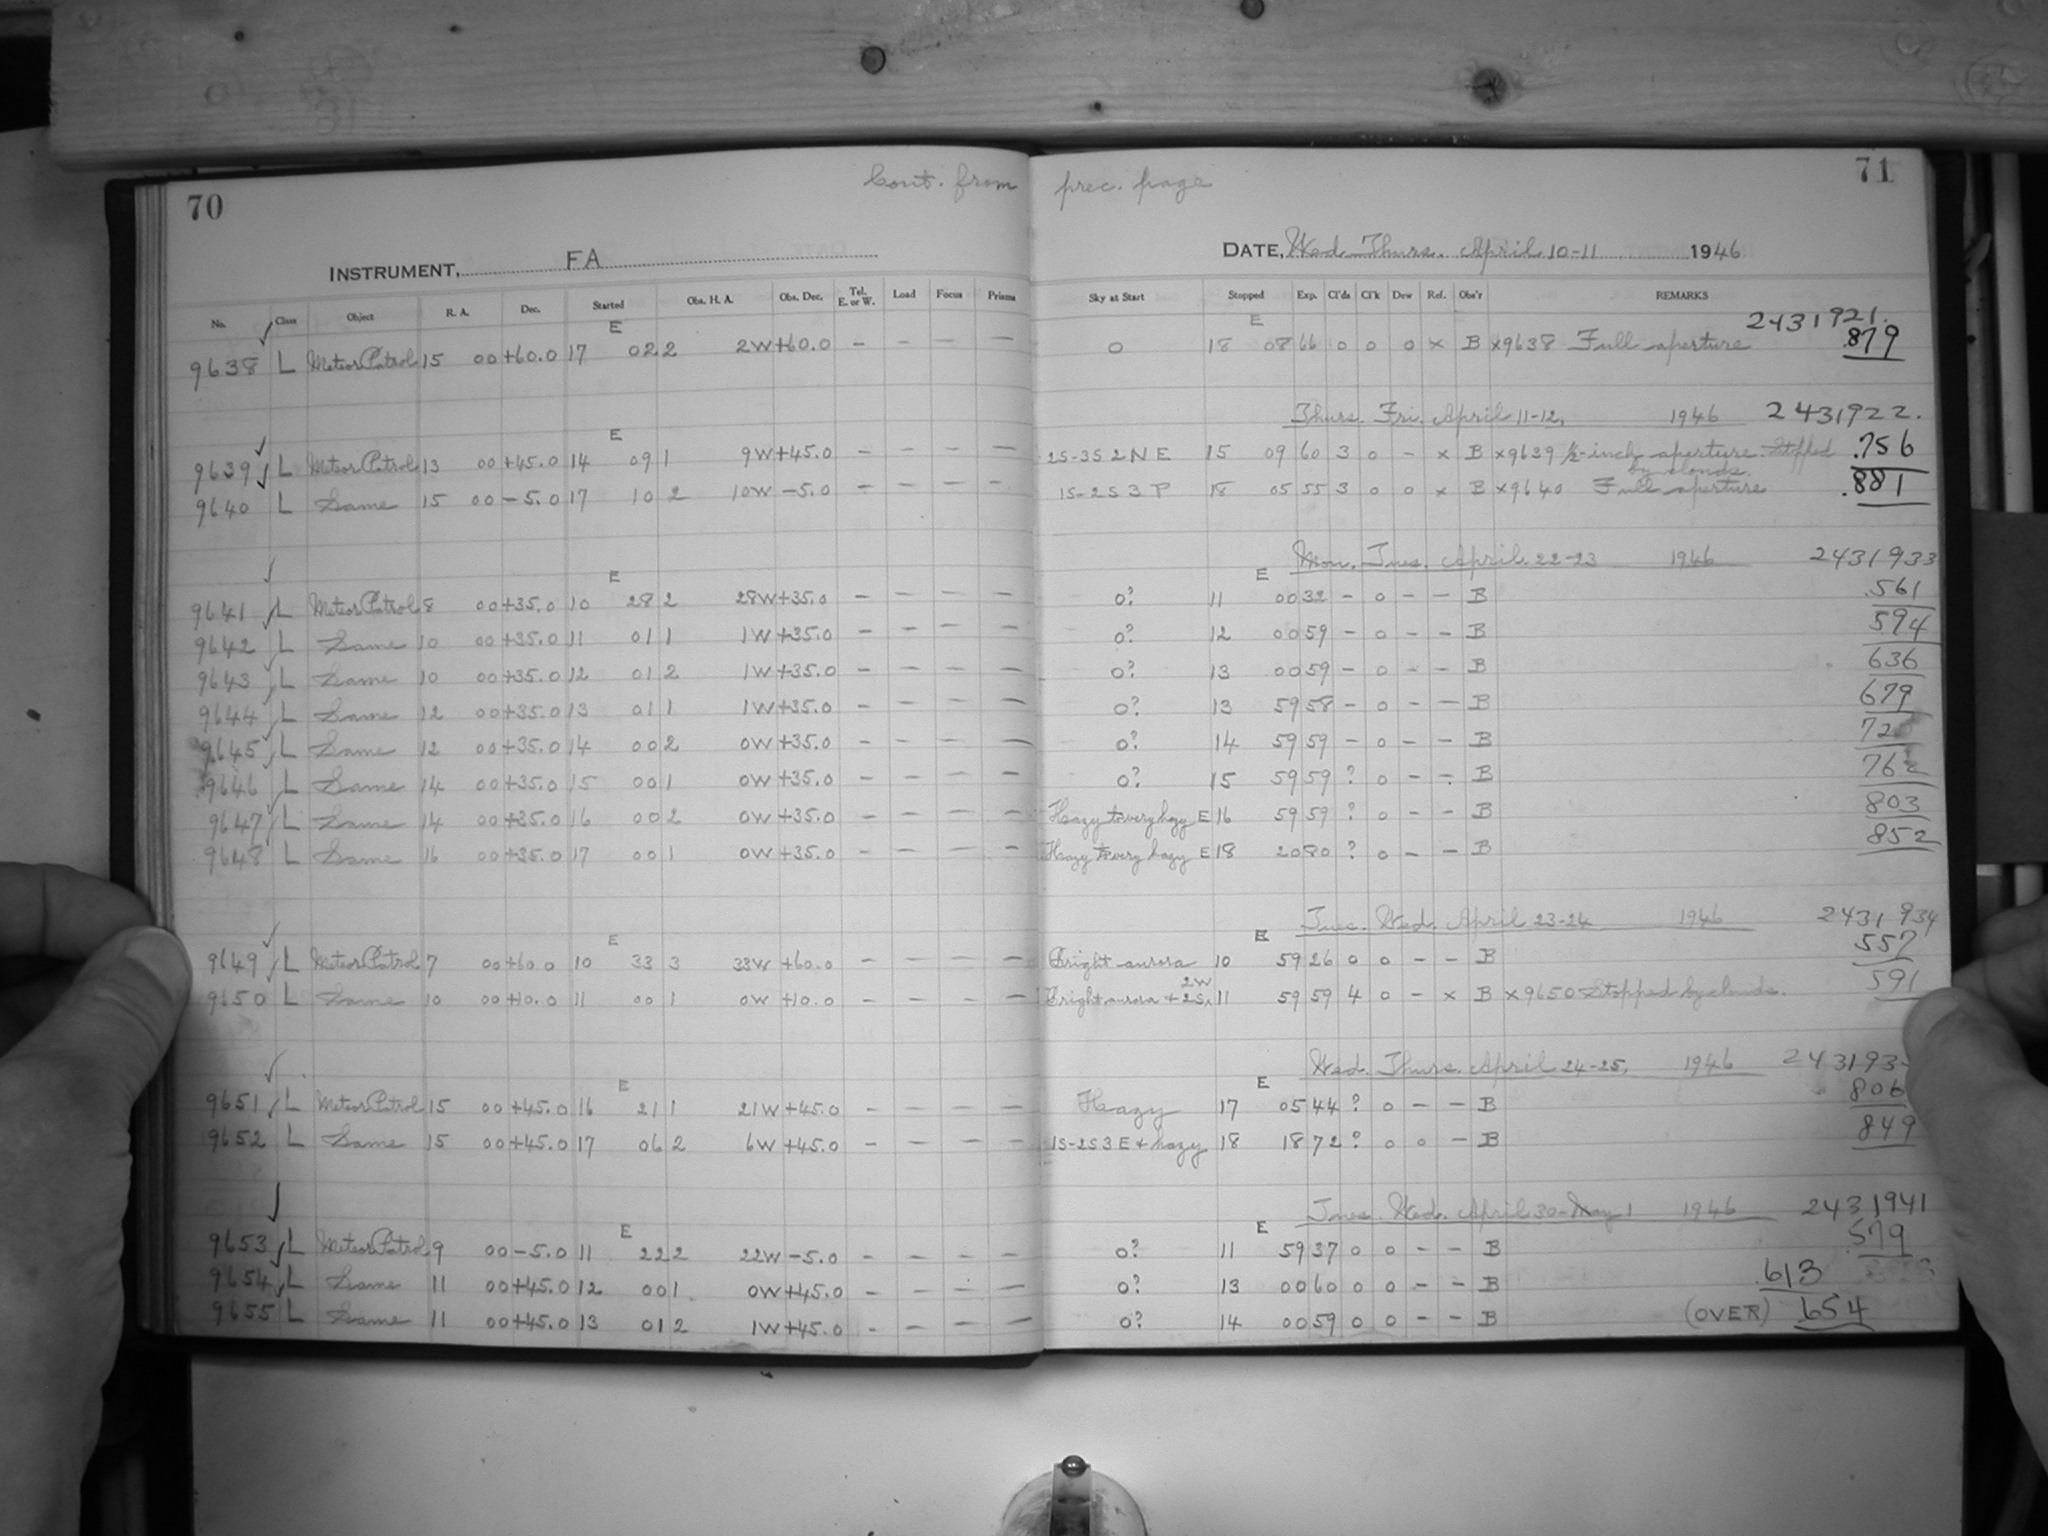 Cont. from prec. page
70
71
INSTRUMENT, FA
DATE, Wed. Thurs. April 10-11 1946
No. Class Object R. A. Dec. Started Obs. H. A. Obs. Dec. Tel. E. or W. Load Focus Prisms Sky at Start Stopped Exp. Cl'ds Cl'k Dew Ref. Obs'r REMARKS
E E 2431921.
9638 L Meteor Patrol 15 00 +60.0 17 02 2 2W +60.0 - - - - 0 18 08 66 0 0 0 x B x9638 Full aperture .879
Thurs. Fri. April 11-12, 1946 2431922.
E
9639 L Meteor Patrol 13 00 +45.0 14 09 1 9W +45.0 - - - - 2S-3S 2 N E 15 09 60 3 0 - x B x9639 ½-inch aperture. Stopped by clouds. .756
9640 L Same 15 00 -5.0 17 10 2 10W -5.0 - - - - 1S-2S 3 P 18 05 55 3 0 0 x B x9640 Full aperture .881
Mon. Tues. April 22-23 1946 2431933
E E
9641 L Meteor Patrol 8 00 +35.0 10 28 2 28W +35.0 - - - - 0? 11 00 32 - 0 - - B .561
9642 L Same 10 00 +35.0 11 01 1 1W +35.0 - - - - 0? 12 00 59 - 0 - - B 594
9643 L Same 10 00 +35.0 12 01 2 1W +35.0 - - - - 0? 13 00 59 - 0 - - B 636
9644 L Same 12 00 +35.0 13 01 1 1W +35.0 - - - - 0? 13 59 58 - 0 - - B 679
9645 L Same 12 00 +35.0 14 00 2 0W +35.0 - - - - 0? 14 59 59 - 0 - - B
9646 L Same 14 00 +35.0 15 00 1 0W +35.0 - - - - 0? 15 59 59 ? 0 - - B
9647 L Same 14 00 +35.0 16 00 2 0W +35.0 - - - - Hazy to very hazy E 16 59 59 ? 0 - - B 803
9648 L Same 16 00 +35.0 17 00 1 0W +35.0 - - - - Hazy to very hazy E 18 20 80 ? 0 - - B 852
Tues. Wed. April 23-24 1946 2431934
E E
9649 L Meteor Patrol 7 00 +60.0 10 33 3 33W +60.0 - - - - Bright aurora 10 59 26 0 0 - - B 557
9650 L Same 10 00 +10.0 11 00 1 0W +10.0 - - - - Bright aurora + 2S 2W 11 59 59 4 0 - x B x9650 Stopped by clouds. 591
Wed. Thurs. April 24-25, 1946 243193
E E
9651 L Meteor Patrol 15 00 +45.0 16 21 1 21W +45.0 - - - - Hazy 17 05 44 ? 0 - - B 806
9652 L Same 15 00 +45.0 17 06 2 6W +45.0 - - - - 1S-2S 3 E + hazy 18 18 72 ? 0 0 - B 849
Tues. Wed. April 30-May 1 1946 2431941
E E
9653 L Meteor Patrol 9 00 -5.0 11 22 2 22W -5.0 - - - - 0? 11 59 37 0 0 - - B .579
9654 L Same 11 00 +45.0 12 00 1 0W +45.0 - - - - 0? 13 00 60 0 0 - - B .613
9655 L Same 11 00 +45.0 13 01 2 1W +45.0 - - - - 0? 14 00 59 0 0 - - B (OVER) 654